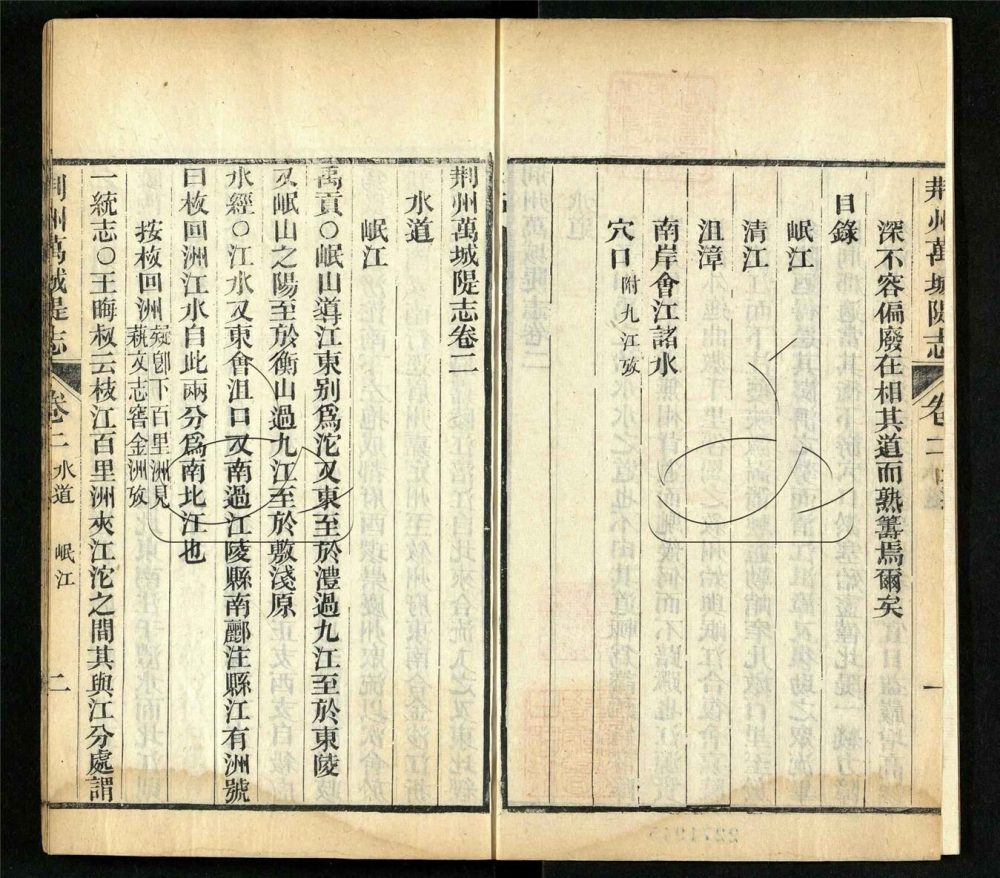 荆州萬城隄志
卷二
一
深不容偏廢在相其道而熟籌焉爾矣
目錄
岷江
清江
沮漳
南岸會江諸水
穴口附九江攷
荆州萬城隄志卷二
水道
岷江
禹貢○岷山導江東别爲沱又東至於澧過九江至於東陵
又岷山之陽至於衡山過九江至於敷淺原
水經○江水又東會沮口又南過江陵縣南酈注縣江有洲號
曰枚回洲江水自此兩分爲南北江也
按枚回洲疑卽下百里洲見
藝文志窖金洲攷
一統志○王晦叔云枝江百里洲夾江沱之間其與江分處謂
荆州萬城隄志
卷二
水道
岷江
二